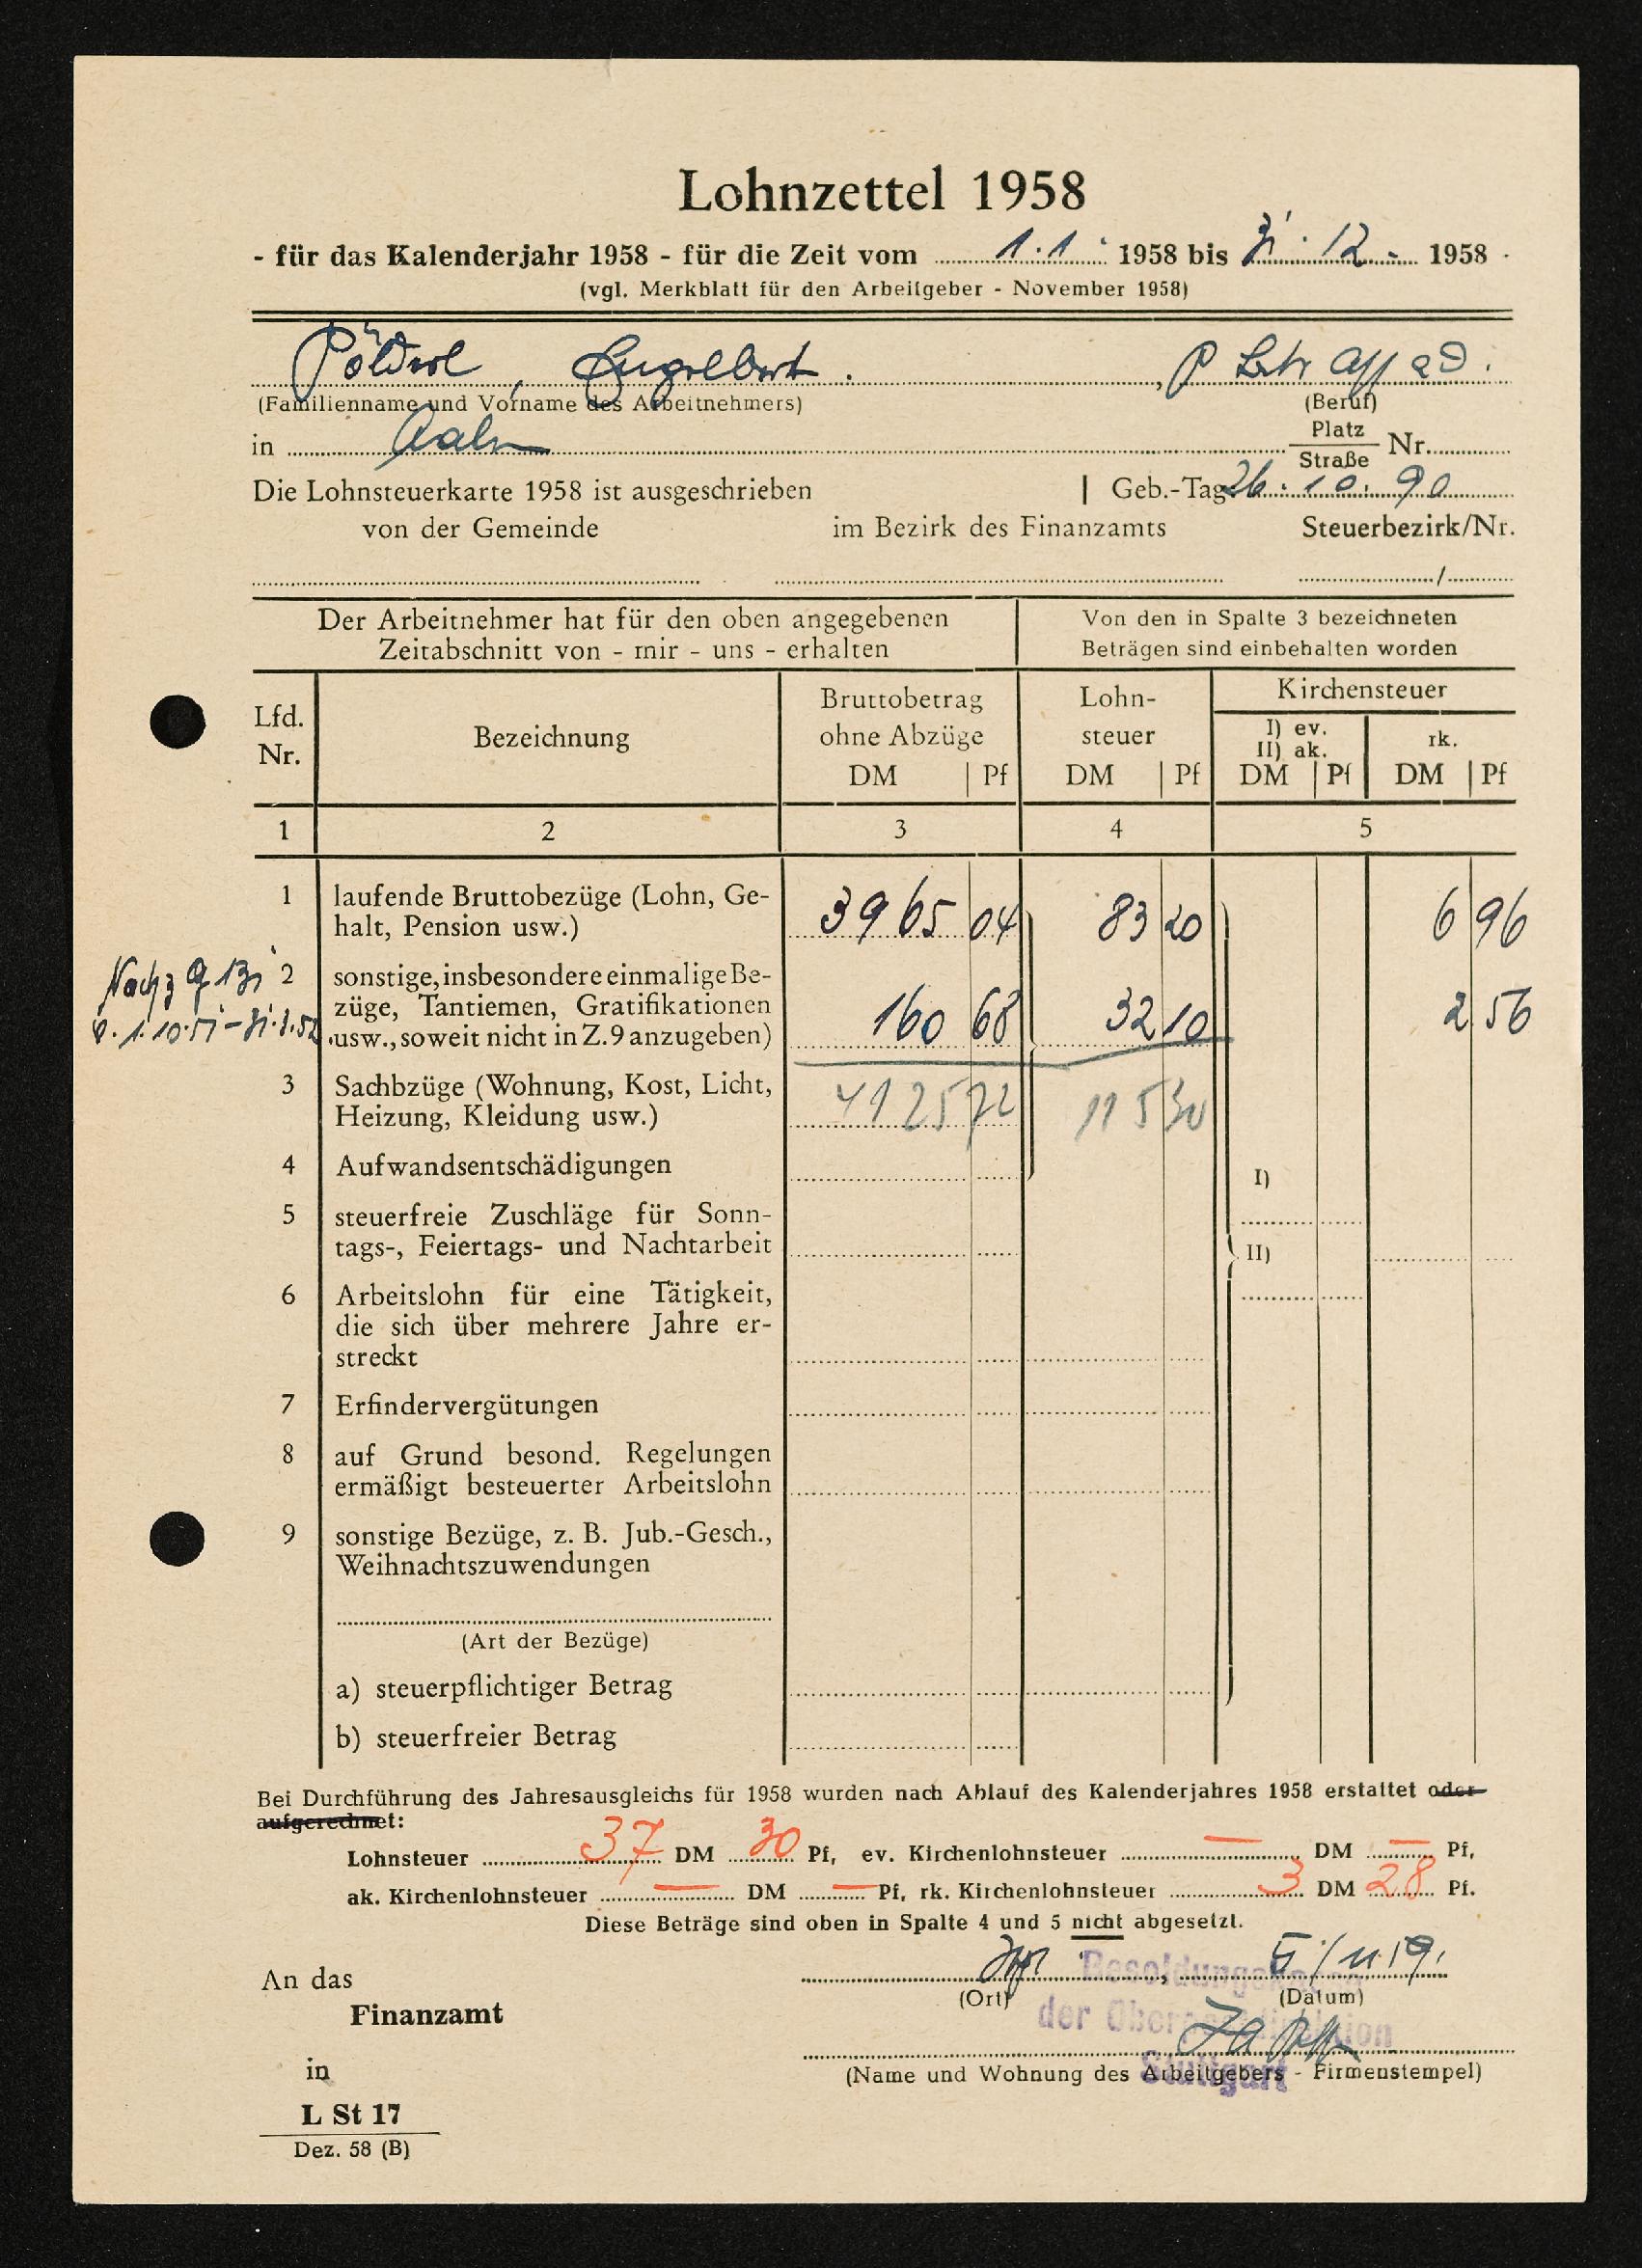 Lohnzettel 1958
- für das Kalenderjahr 1958 - für die Zeit vom 1.1. 1958 bis 31. 12. 1958
(vgl. Merkblatt für den Arbeitgeber - November 1958)
Engelbert
(Familienname und Vorname des Arbeitnehmers) (Beruf)
in Aalen Platz Straße Nr.
Die Lohnsteuerkarte 1958 ist ausgeschrieben | Geb.-Tag 26. 10. 90
von der Gemeinde im Bezirk des Finanzamts Steuerbezirk/Nr.
/
Der Arbeitnehmer hat für den oben angegebenen Von den in Spalte 3 bezeichneten
Zeitabschnitt von - mir - uns - erhalten Beträgen sind einbehalten worden
Lfd. Nr. Bezeichnung Bruttobetrag ohne Abzüge DM Pf Lohn-steuer DM Pf Kirchensteuer I) ev. II) ak. DM Pf rk. DM Pf
1 2 3 4 5
1 laufende Bruttobezüge (Lohn, Ge-
halt, Pension usw.) 3965 04 83 20 6 96
2 sonstige, insbesondere einmalige Be-
züge, Tantiemen, Gratifikationen
usw., soweit nicht in Z. 9 anzugeben) 160 68 32 10 2 56
3 Sachbzüge (Wohnung, Kost, Licht,
Heizung, Kleidung usw.) 4125 72 115 30
4 Aufwandsentschädigungen I)
5 steuerfreie Zuschläge für Sonn-
tags-, Feiertags- und Nachtarbeit II)
6 Arbeitslohn für eine Tätigkeit,
die sich über mehrere Jahre er-
streckt
7 Erfindervergütungen
8 auf Grund besond. Regelungen
ermäßigt besteuerter Arbeitslohn
9 sonstige Bezüge, z. B. Jub.-Gesch.,
Weihnachtszuwendungen
(Art der Bezüge)
a) steuerpflichtiger Betrag
b) steuerfreier Betrag
Bei Durchführung des Jahresausgleichs für 1958 wurden nach Ablauf des Kalenderjahres 1958 erstattet oder
aufgerechnet:
Lohnsteuer 37 DM 30 Pf, ev. Kirchenlohnsteuer — DM — Pf,
ak. Kirchenlohnsteuer — DM — Pf, rk. Kirchenlohnsteuer 3 DM 28 Pf.
Diese Beträge sind oben in Spalte 4 und 5 nicht abgesetzt.
An das
(Ort) (Datum)
Finanzamt
der Stuttgart
in (Name und Wohnung des Arbeitgebers - Firmenstempel)
L St 17
Dez. 58 (B)